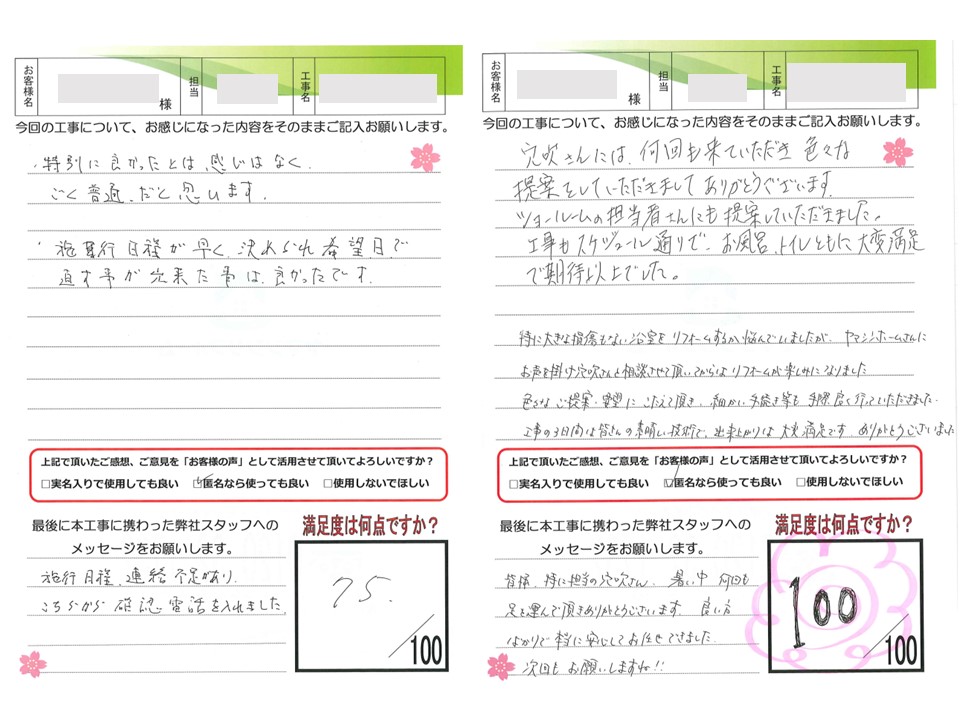 お客様名
様
担当
工事名
今回の工事について、お感じになった内容をそのままご記入お願いします。
・特別に良かったとは、感じはなく、
ごく普通、だと思います。
・施行日程が早く、決められ希望日で
直す事が出来た事は、良かったです。
上記で頂いたご感想、ご意見を「お客様の声」として活用させて頂いてよろしいですか？
□実名入りで使用しても良い ☑匿名なら使っても良い □使用しないでほしい
最後に本工事に携わった弊社スタッフへの
メッセージをお願いします。
施行日程、連絡不足があり、
こちらから確認電話を入れました。
満足度は何点ですか？
75.
/100
お客様名
様
担当
工事名
今回の工事について、お感じになった内容をそのままご記入お願いします。
穴吹さんには、何回も来ていただき色々な
提案をしていただきましてありがとうございます。
ショールームの担当者さんにも提案していただきました。
工事もスケジュール通りで、お風呂、トイレともに大変満足
で期待以上でした。
特に大きな損傷もない浴室をリフォームするか悩んでいましたが、ヤマジンホームさんに
お声を掛け穴吹さんと相談させて頂いてからはリフォームが楽しみになりました
色々なご提案・要望にこたえて頂き、細かい手続き等も手際良く行っていただきました。
工事の3日間は皆さんの素晴しい技術で、出来上がりは大変満足です。ありがとうございました
上記で頂いたご感想、ご意見を「お客様の声」として活用させて頂いてよろしいですか？
□実名入りで使用しても良い ☑匿名なら使っても良い □使用しないでほしい
最後に本工事に携わった弊社スタッフへの
メッセージをお願いします。
皆様、特に担当の穴吹さん、暑い中何回も
足を運んで頂きありがとうございます。良い方
ばかりで本当に安心してお任せできました。
次回もお願いしますね!!
満足度は何点ですか？
100
/100